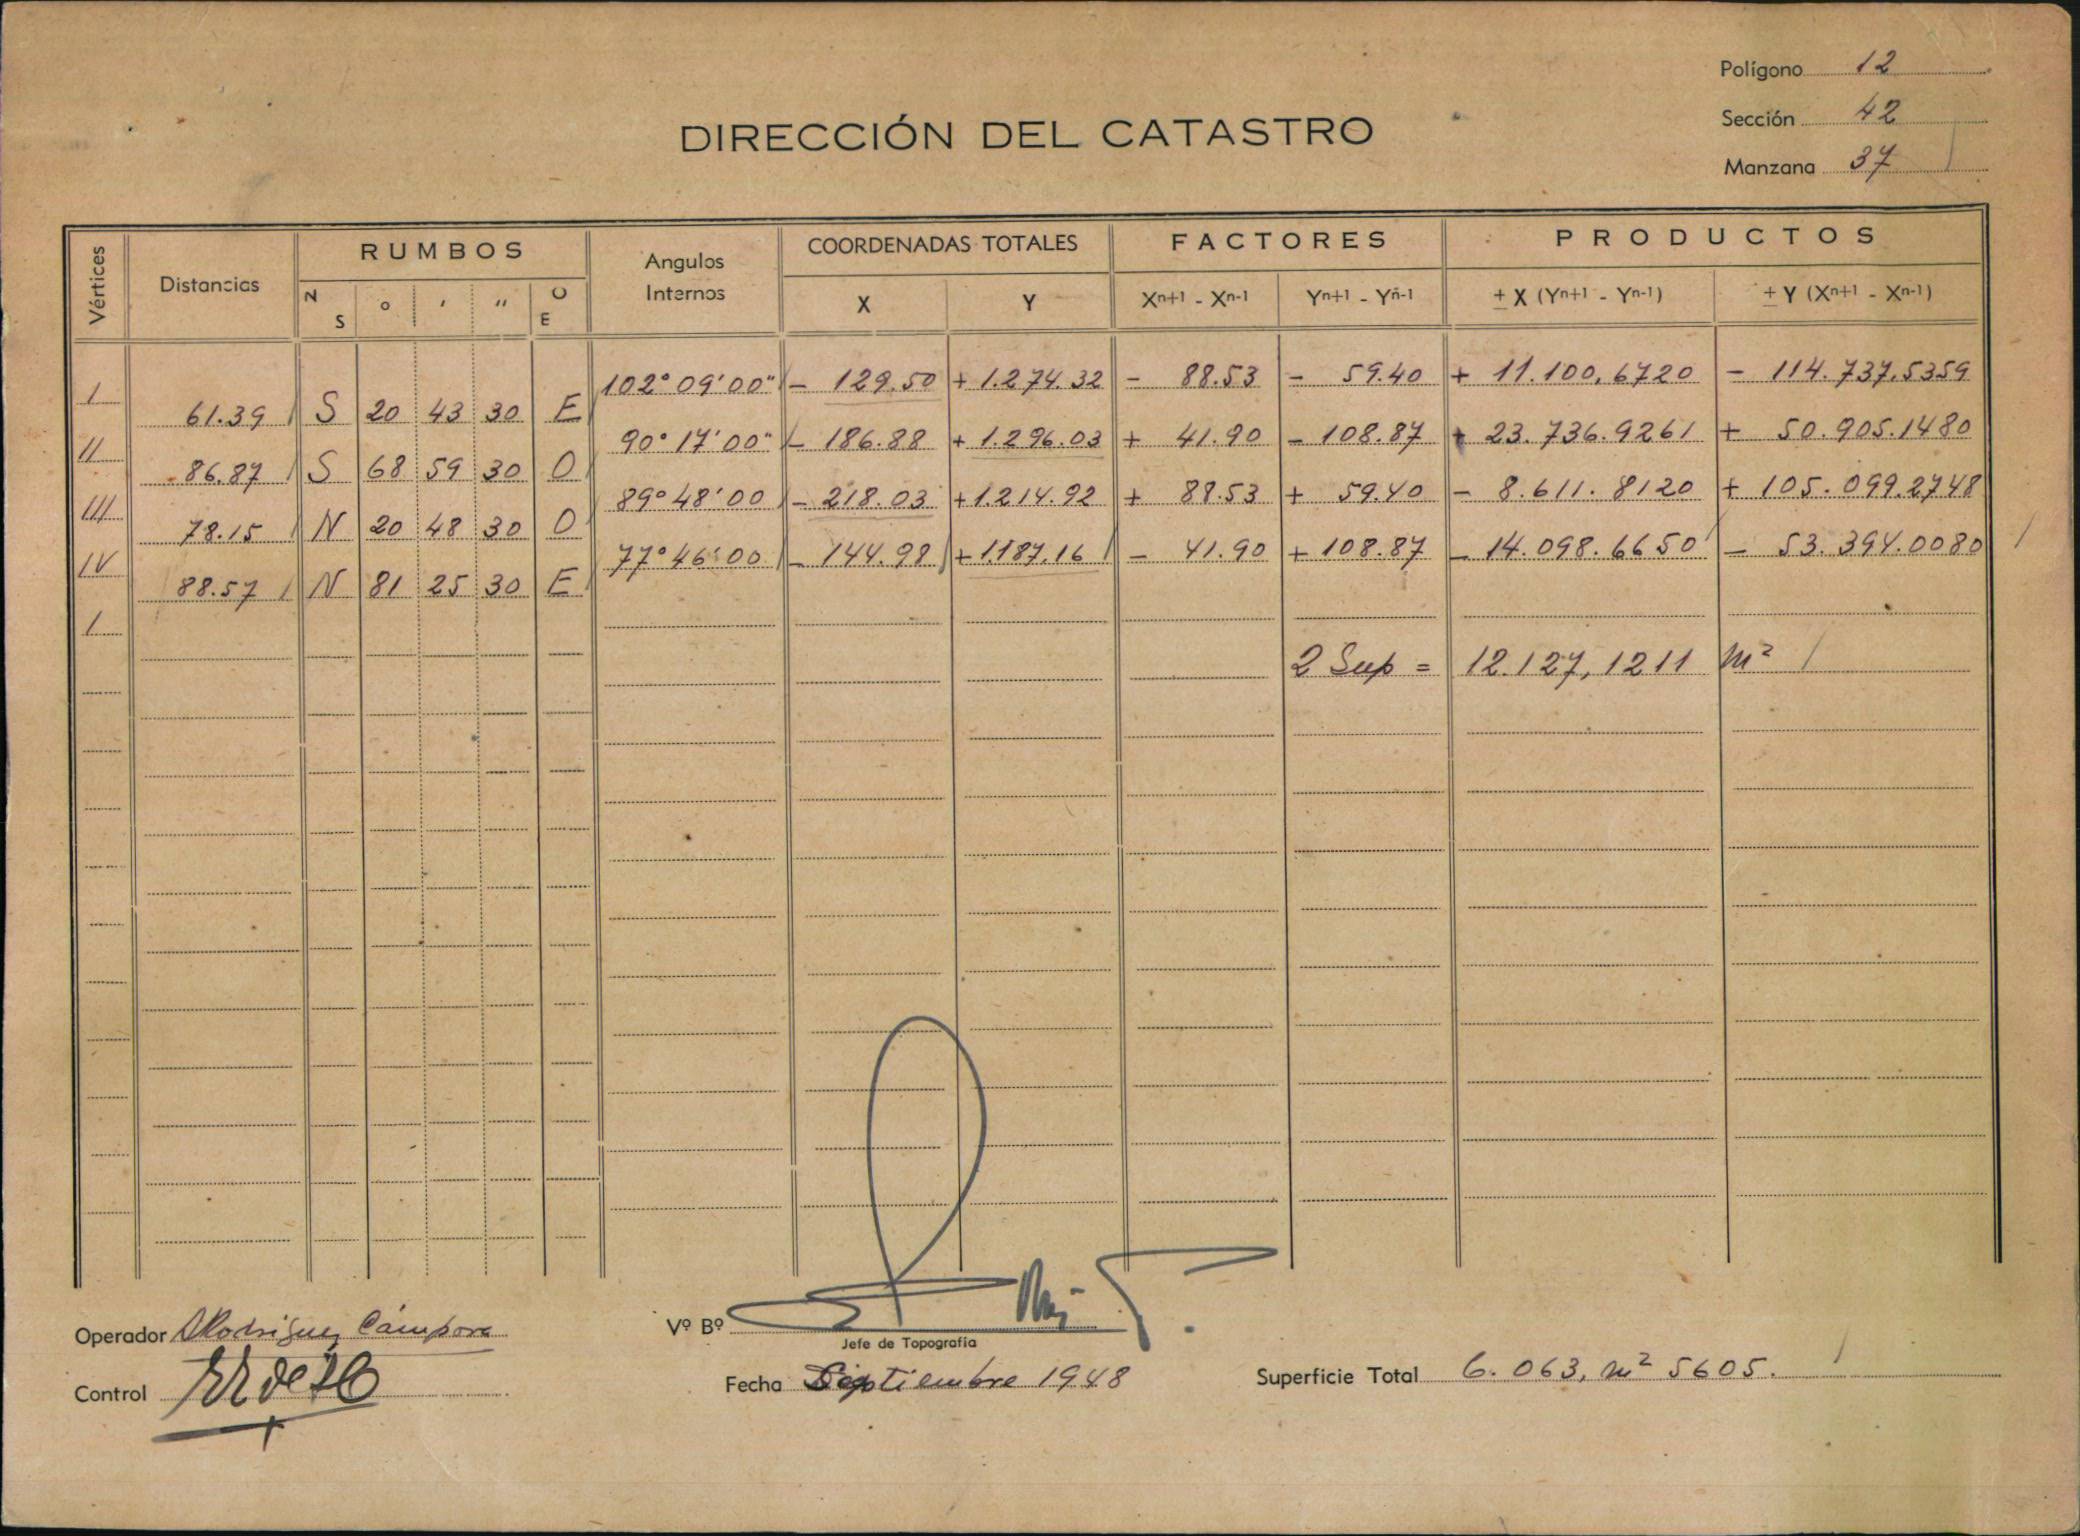 Polígono 12
Sección 42
Manzana 37
DIRECCIÓN DEL CATASTRO
Vértices Distancias RUMBOS Angulos Internos COORDENADAS TOTALES FACTORES PRODUCTOS
N S ° ' " O E X Y Xn+1 - Xn-1 Yn+1 - Yn-1 ± X (Yn+1 - Yn-1) ± Y (Xn+1 - Xn-1)
I 102° 09' 00" - 129.50 + 1.274.32 - 88.53 - 59.40 + 11.100,6720 - 114.737.5359
61.39 S 20 43 30 E
II 90° 17' 00" - 186.88 + 1.296.03 + 41.90 - 108.87 + 23.736.9261 + 50.905.1480
86.87 S 68 59 30 O
III 89° 48' 00 - 218.03 + 1.214.92 + 88.53 + 59.40 - 8.611.8120 + 105.099.2748
78.15 N 20 48 30 O
IV 77° 46' 00 - 144.98 + 1.187.16 - 41.90 + 108.87 - 14.098.6650 - 53.394.0080
88.57 N 81 25 30 E
I
2 Sup = 12.127,1211 m²
Operador Rodriguez Cámpora
Vº Bº
Jefe de Topografía
Control
Fecha Septiembre 1948
Superficie Total 6.063, m² 5605.